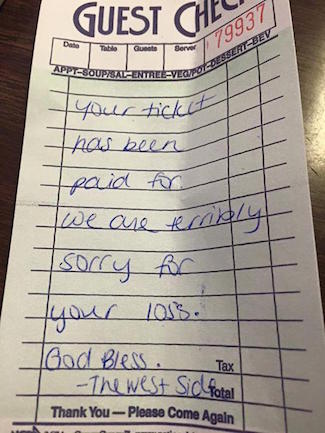 GUEST CHEC
79937
Date Table Guests Server
APPT-SOUP/SAL-ENTREE-VEG/POT-DESSERT-BEV
your ticket
has been
paid for
we are terribly
sorry for
your loss.
God Bless. Tax
-The West Side Total
Thank You — Please Come Again